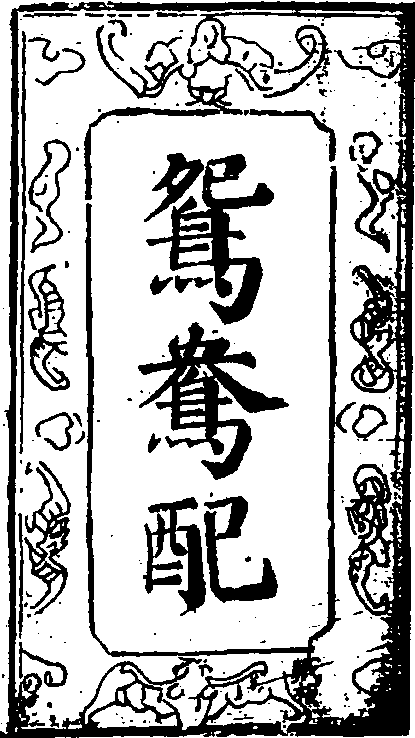 鴛鴦配